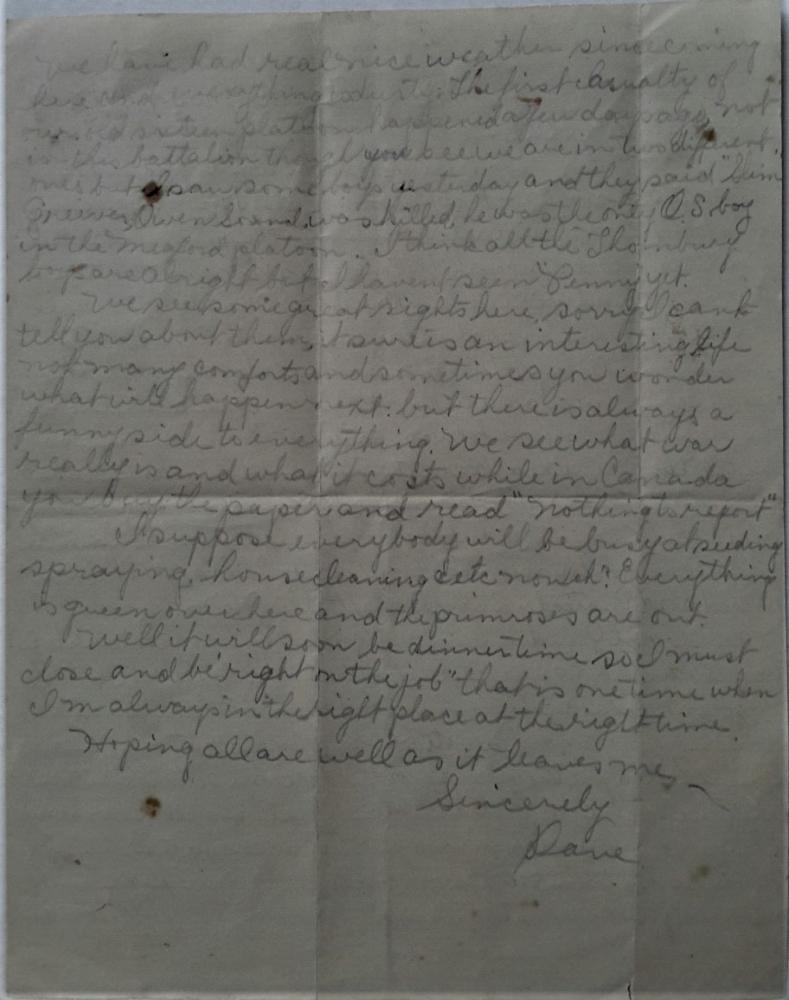 We have had real nice weather since coming
here and everything is dusty. The first casualty of
our old sixteen platoon happened a few days ago, not
in this battalion though you see we are in two different
ones but I saw some boys yesterday and they said "Slim"
Greeves, Owen Sound, was killed, he was the only O.S. boy
in the Meaford platoon. I think all the Thornbury
boys are alright but I havent seen "Penny" yet.
We see some great sights here, sorry I cant
tell you about them, it sure is an interesting life
not many comforts and sometimes you wonder
what will happen next: but there is always a
funny side to everything. We see what war
really is and what it costs while in Canada
you buy the paper and read "nothing to report"
I suppose everybody will be busy at seeding
spraying, housecleaning & etc now eh? Everything
is green over here and the primroses are out.
Well it will soon be dinner time so I must
close and be "right on the job" that is one time when
I'm always in the right place at the right time.
Hoping all are well as it leaves me,
Sincerely
Dave